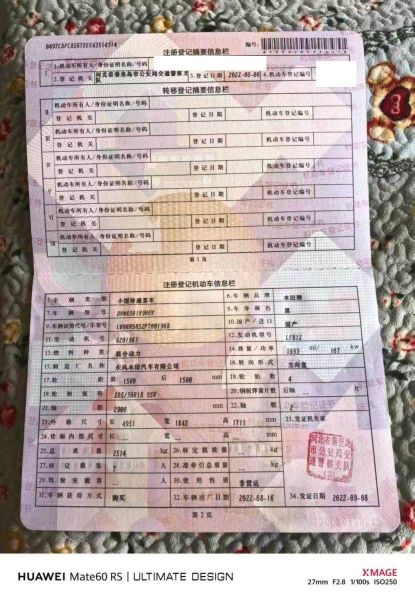 注册登记摘要信息栏
编号:
1.机动车所有人/身份证明名称/号码
2.登记机关 河北省秦皇岛市公安局交通警察支队 3.登记日期 2022-09-08 4.机动车登记编号
转移登记摘要信息栏
机动车所有人/身份证明名称/号码
登记机关 登记日期 机动车登记编号
机动车所有人/身份证明名称/号码
登记机关 登记日期 机动车登记编号
机动车所有人/身份证明名称/号码
登记机关 登记日期 机动车登记编号
机动车所有人/身份证明名称/号码
登记机关 登记日期 机动车登记编号
机动车所有人/身份证明名称/号码
登记机关 登记日期 机动车登记编号
机动车所有人/身份证明名称/号码
登记机关 登记日期 机动车登记编号
第1页
注册登记机动车信息栏
5.车辆类型 小型普通客车 6.车辆品牌 本田牌
7.车辆型号 8.车身颜色 黑
9.车辆识别代号/车架号 10.国产/进口 国产
11.发动机号 6201963 12.发动机型号 LFB12
13.燃料种类 混合动力 14.排量/功率 1993 ml/ 107 kw
15.制造厂名称 东风本田汽车有限公司 16.转向形式 方向盘
17.轮距 前 1560 后 1580 mm 18.轮胎数 4
19.轮胎规格 20.钢板弹簧片数 后轴 片
21.轴距 2900 mm 22.轴数 2
23.外廓尺寸 长 4951 宽 1842 高 1711 mm 33.发证机关章
24.货厢内部尺寸 长 宽 高 mm
25.总质量 2514 kg 26.核定载质量 kg
27.核定载客 7 人 28.准牵引总质量 kg
29.驾驶室载客 人 30.使用性质 非营运
31.车辆获得方式 购买 32.车辆出厂日期 2022-08-16 34.发证日期 2022-09-08
河北省秦皇岛市公安局交通警察支队
第2页
HUAWEI Mate60 RS | ULTIMATE DESIGN
XMAGE
27mm F2.8 1/100s ISO250